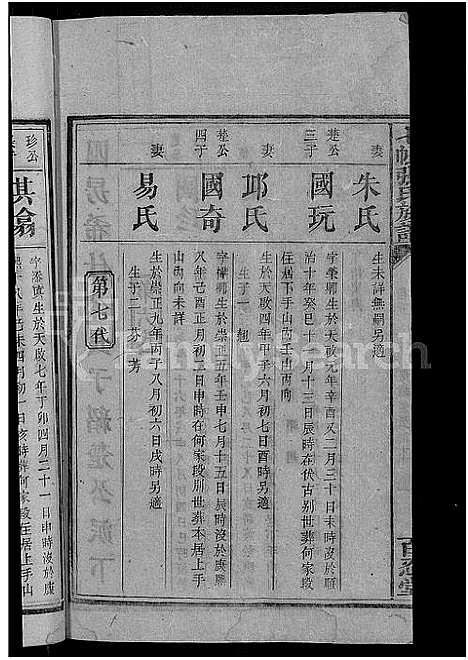 張氏族譜
百忍堂
妻 朱氏 生未詳無嗣另適
楚公三子 國玩 字榮鄉生於天啟元年辛酉又二月三十日未時沒於順
治十年癸巳十月十三日辰時在伏古別世葬何家段
住居下手山丙壬山丙向
妻 邱氏 生於天啟四年甲子六月初七日酉時另適
生子一 翹
楚公四子 國奇 字權鄉生於崇正五年壬申七月十五日辰時沒於康熙
八年己酉正月初三日申時在何家段別世葬本居上手
山向未詳
妻 易氏 生於崇正九年丙子八月初六日戌時另適
生子二 芬 芳
第七代
珍公長子 其翕 字添慎生於天啟七年丁卯四月二十一日申時沒於康
熙十八年己未四月初一日亥時葬何家段住居上手山
FamilySearch